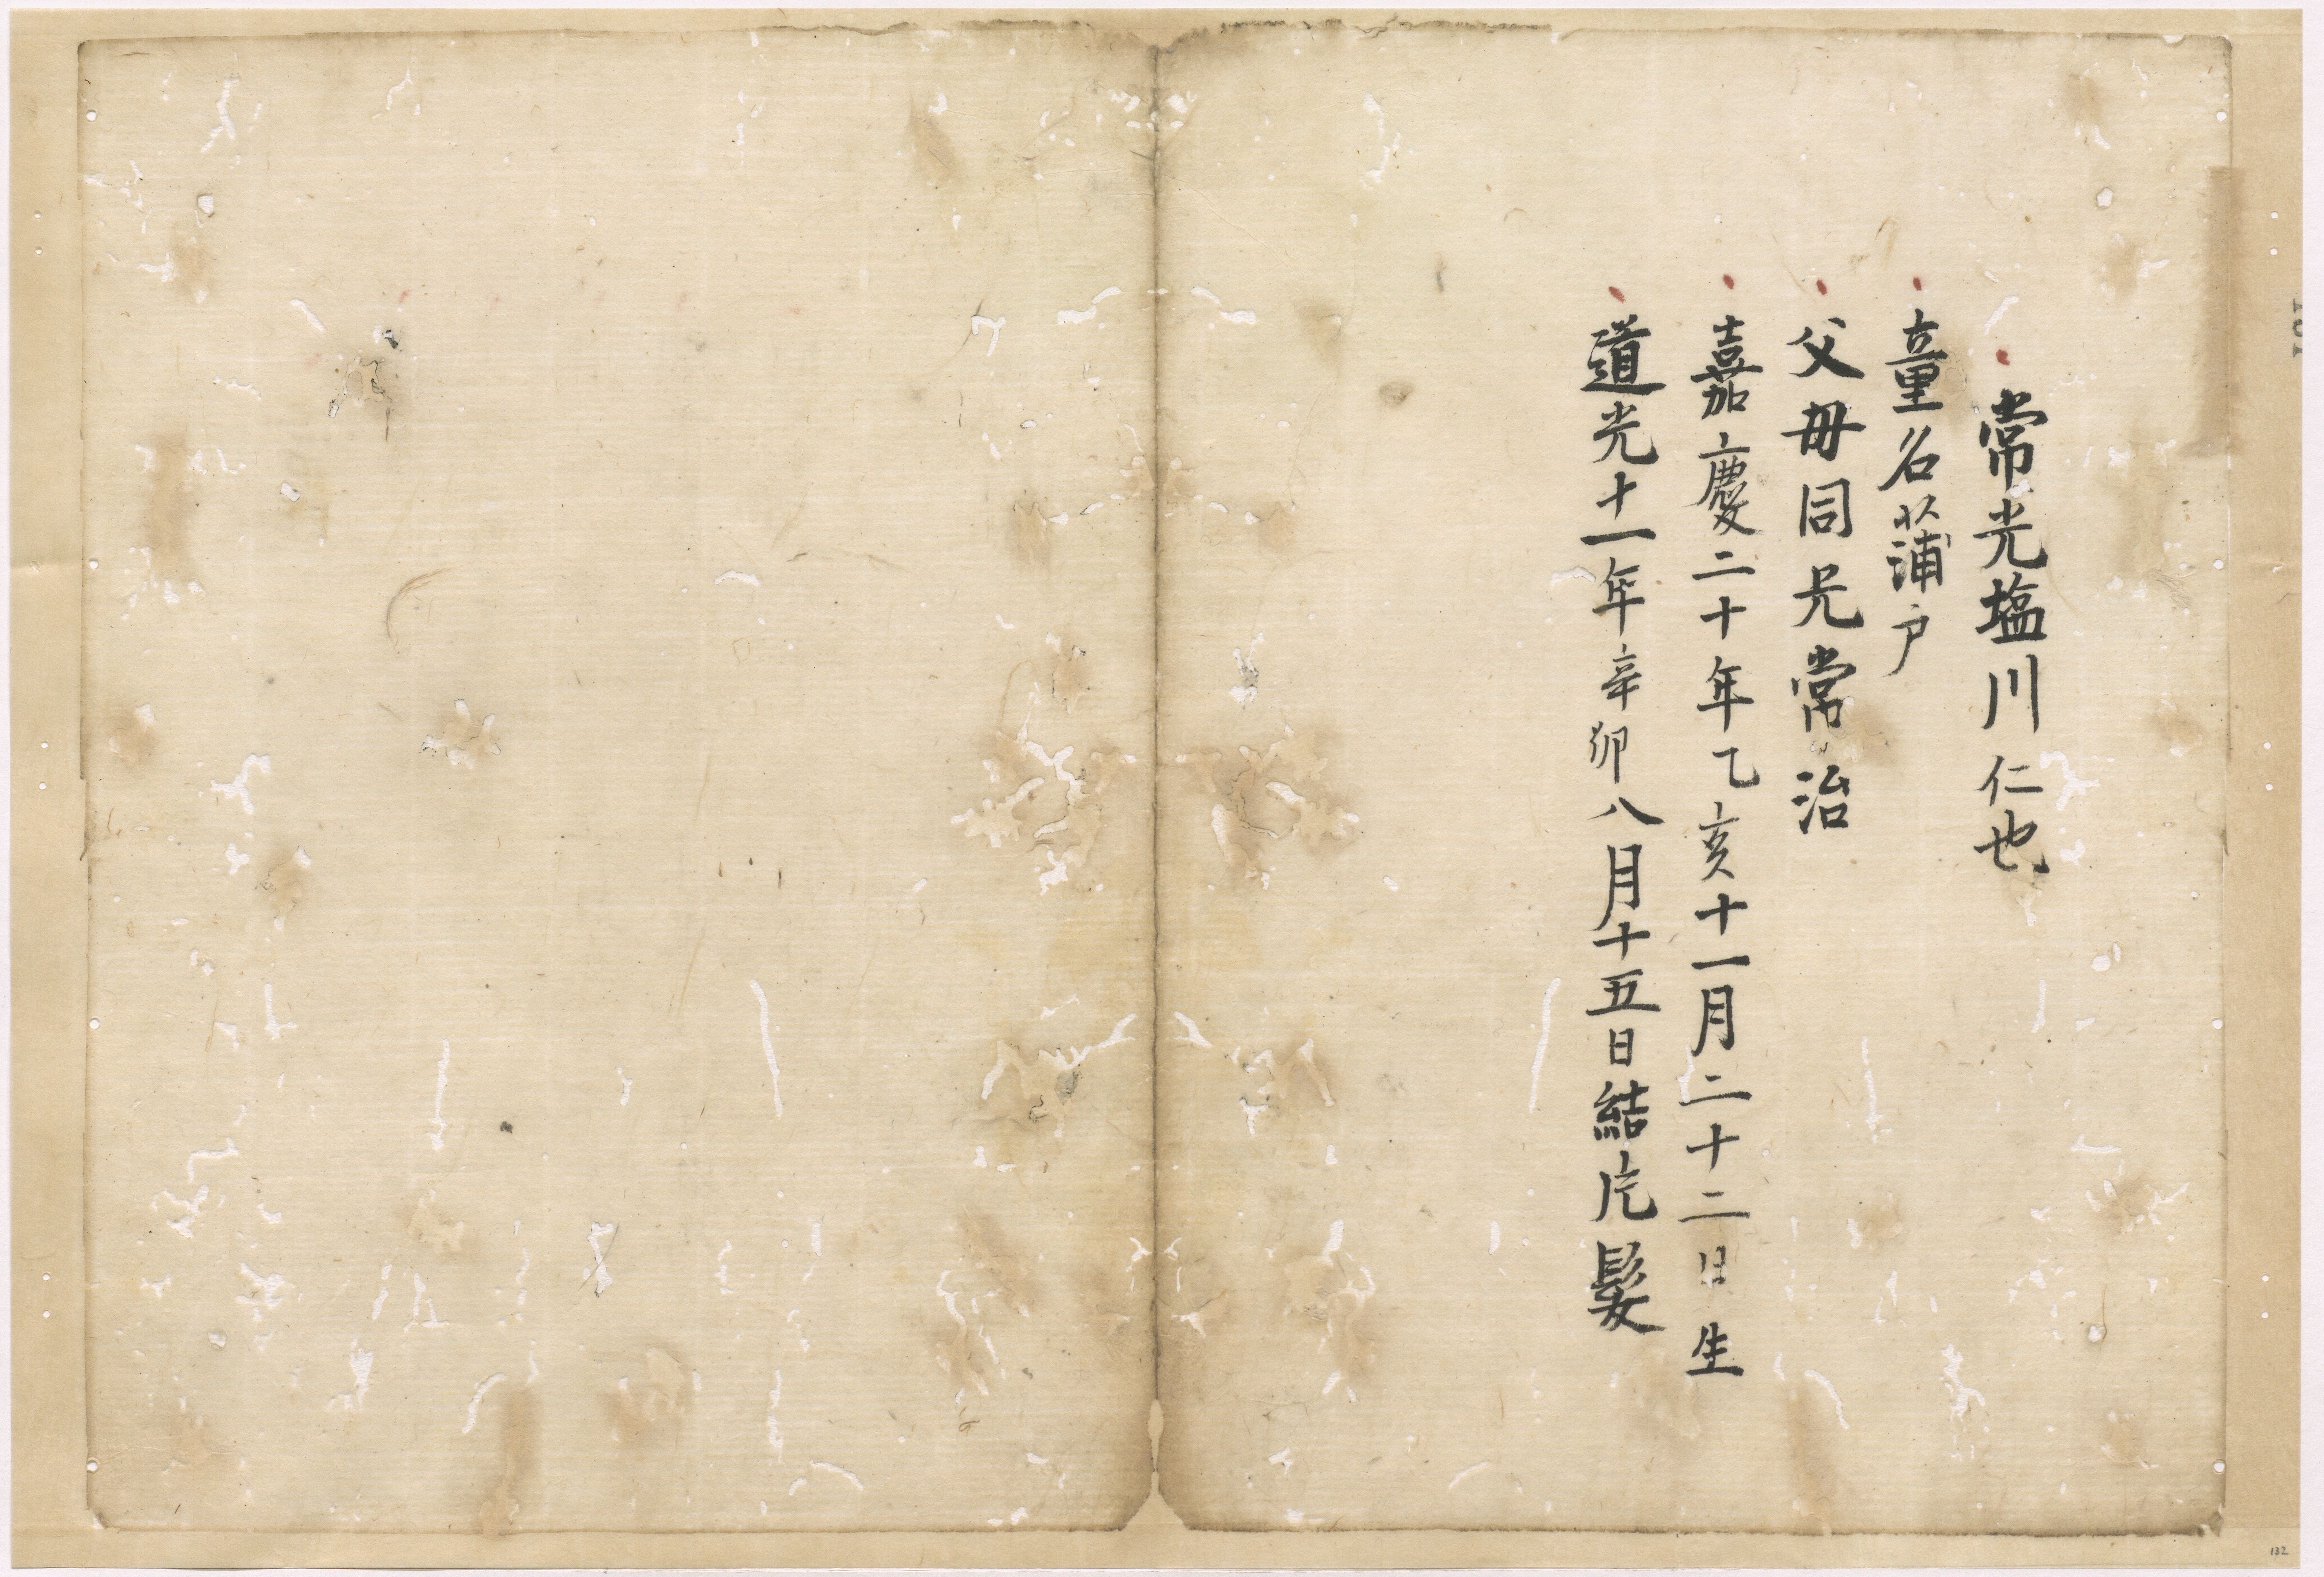 常光塩川仁也
童名蒲戸
父毋同兄常治
嘉慶二十年乙亥十一月二十二日生
道光十一年辛卯八月十五日結片髪
132